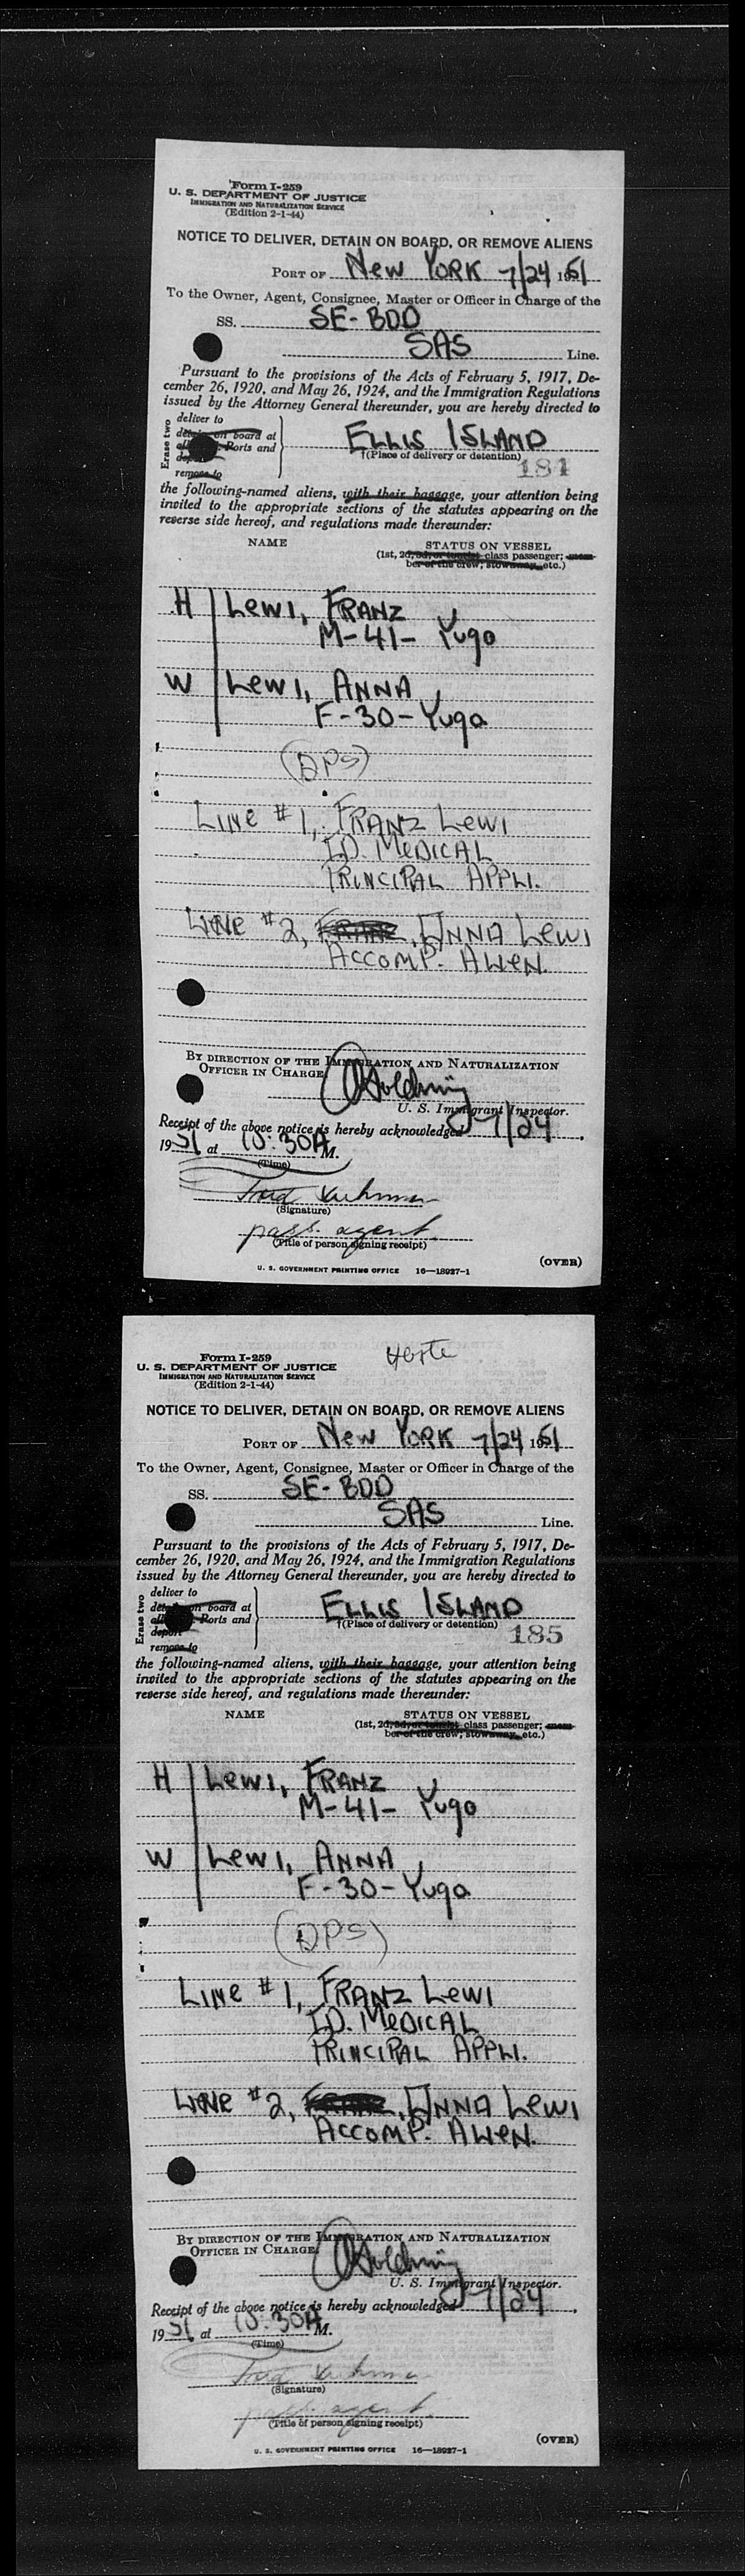 Form I-259
U. S. DEPARTMENT OF JUSTICE
IMMIGRATION AND NATURALIZATION SERVICE
(Edition 2-1-44)
NOTICE TO DELIVER, DETAIN ON BOARD, OR REMOVE ALIENS
PORT OF New York 7/24 1951
To the Owner, Agent, Consignee, Master or Officer in Charge of the
SS. SE-BDD
SAS Line.
Pursuant to the provisions of the Acts of February 5, 1917, De-
cember 26, 1920, and May 26, 1924, and the Immigration Regulations
issued by the Attorney General thereunder, you are hereby directed to
Erase two
deliver to
detain on board at
all Ports and
deport
remove to
ELLIS ISLAND
†(Place of delivery or detention)
184
the following-named aliens, with their baggage, your attention being
invited to the appropriate sections of the statutes appearing on the
reverse side hereof, and regulations made thereunder:
NAME STATUS ON VESSEL
(1st, 2d, 3d, or tourist class passenger; mem-
ber of the crew, stowaway, etc.)
H Lewi, FRANZ
M-41- Yugo
W Lewi, ANNA
F-30-Yugo
(DPS)
Line #1, FRANZ Lewi
I.D. MeDICAL
PRINCIPAL APPLI.
Line #2, ANNA Lewi
ACCOMP. ALIEN.
BY DIRECTION OF THE IMMIGRATION AND NATURALIZATION
OFFICER IN CHARGE
U. S. Immigrant Inspector.
Receipt of the above notice is hereby acknowledged 7/24,
1951 at 10:30A M.
(Time)
(Signature)
pass. agent
(Title of person signing receipt)
(OVER)
U. S. GOVERNMENT PRINTING OFFICE 16—18927-1
Form I-259
U. S. DEPARTMENT OF JUSTICE
IMMIGRATION AND NATURALIZATION SERVICE
(Edition 2-1-44)
NOTICE TO DELIVER, DETAIN ON BOARD, OR REMOVE ALIENS
PORT OF New York 7/24 1951
To the Owner, Agent, Consignee, Master or Officer in Charge of the
SS. SE-BDD
SAS Line.
Pursuant to the provisions of the Acts of February 5, 1917, De-
cember 26, 1920, and May 26, 1924, and the Immigration Regulations
issued by the Attorney General thereunder, you are hereby directed to
Erase two
deliver to
detain on board at
all Ports and
deport
remove to
ELLIS ISLAND
†(Place of delivery or detention)
185
the following-named aliens, with their baggage, your attention being
invited to the appropriate sections of the statutes appearing on the
reverse side hereof, and regulations made thereunder:
NAME STATUS ON VESSEL
(1st, 2d, 3d, or tourist class passenger; mem-
ber of the crew, stowaway, etc.)
H Lewi, FRANZ
M-41- Yugo
W Lewi, ANNA
F-30-Yugo
(DPS)
Line #1, FRANZ Lewi
I.D. MeDICAL
PRINCIPAL APPLI.
Line #2, ANNA Lewi
ACCOMP. ALIEN.
BY DIRECTION OF THE IMMIGRATION AND NATURALIZATION
OFFICER IN CHARGE
U. S. Immigrant Inspector.
Receipt of the above notice is hereby acknowledged 7/24,
1951 at 10:30A M.
(Time)
(Signature)
(Title of person signing receipt)
(OVER)
U. S. GOVERNMENT PRINTING OFFICE 16—18927-1